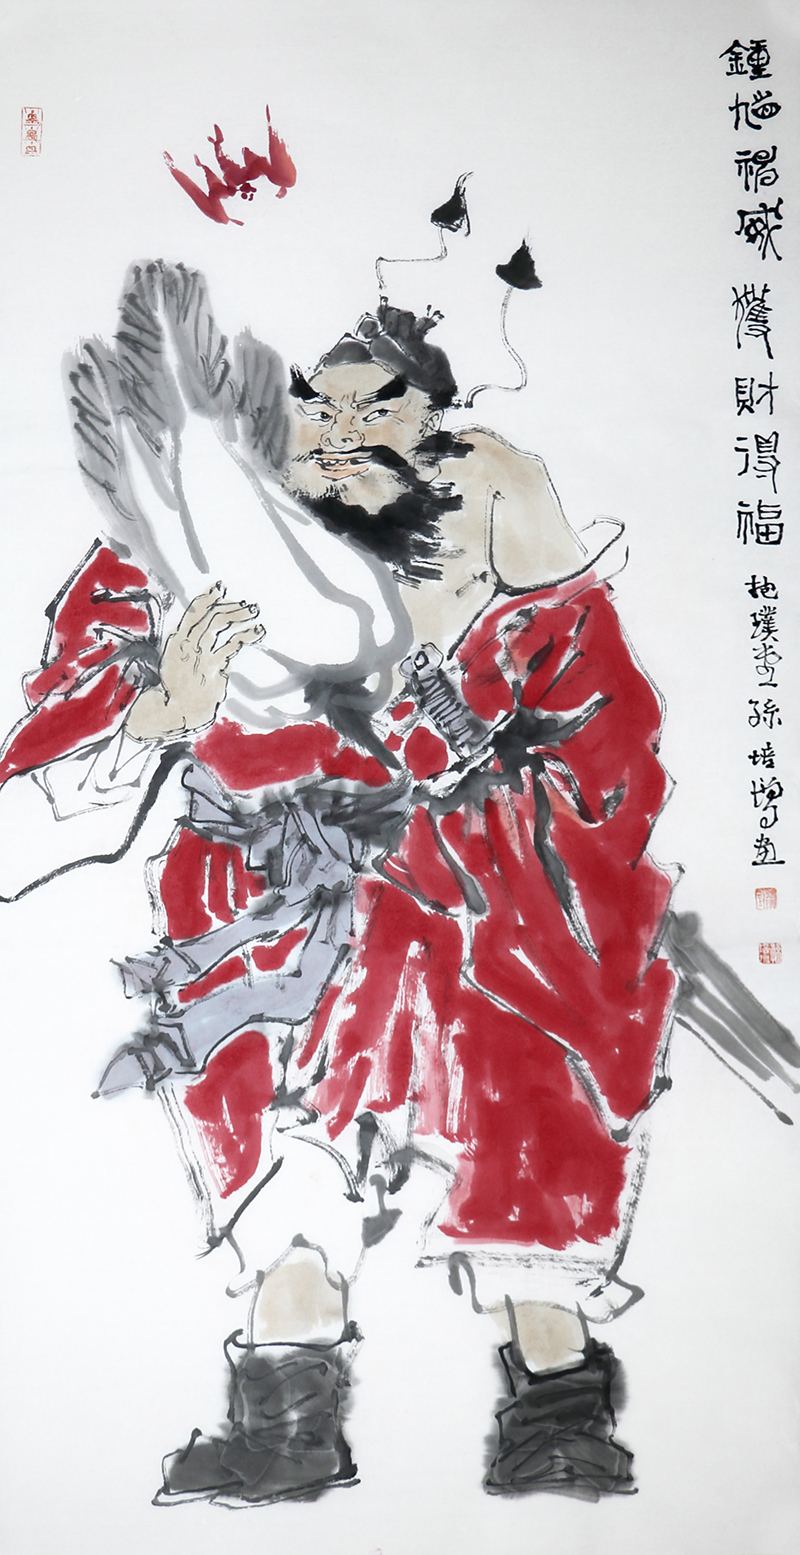 鍾馗神威 獲財得福 抱璞堂主孫培增畫